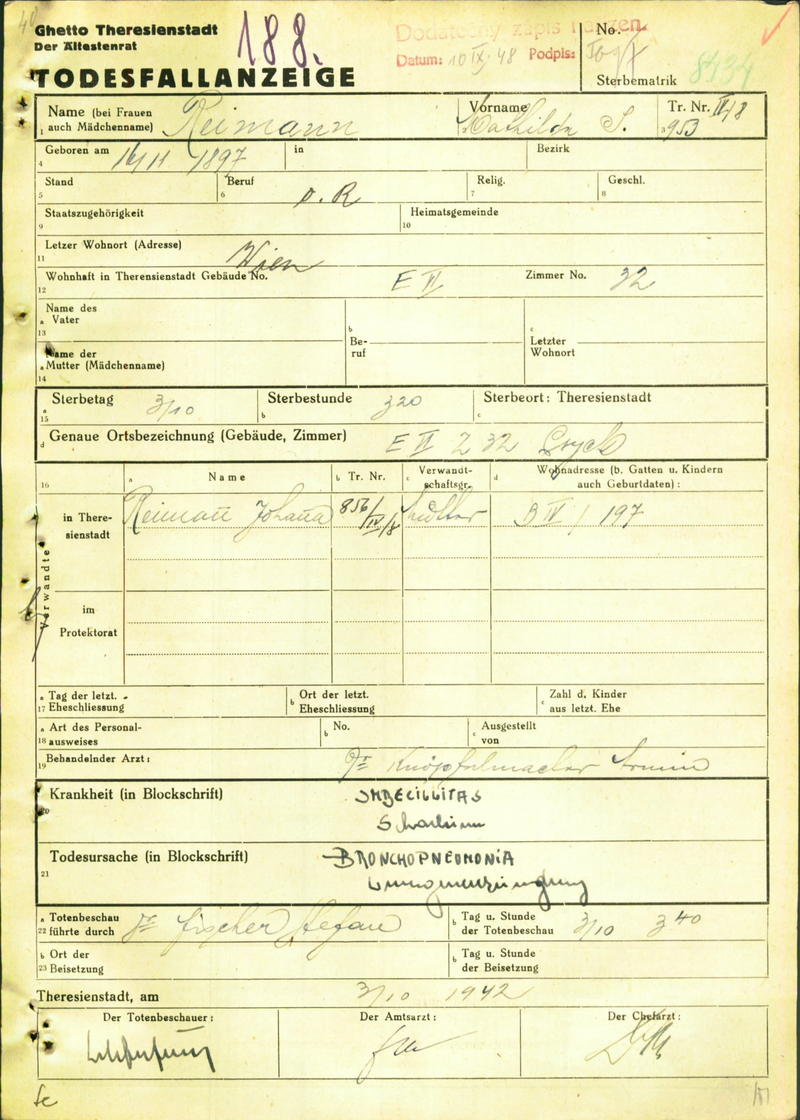 Ghetto Theresienstadt
Der Ältestenrat
TODESFALLANZEIGE
188.
Dodatečný zápis
Datum: 10 IX 48 Podpis:
No.
Sterbematrik 8434
Name (bei Frauen auch Mädchenname) Reimann
Vorname Mathilde S.
Tr. Nr. IV/8 953
1
Geboren am 16/11 1897 in Bezirk
4
Stand Beruf o. R Relig. Geschl.
5 6 7 8
Staatszugehörigkeit Heimatsgemeinde
9 10
Letzer Wohnort (Adresse) Wien
11
Wohnhaft in Theresienstadt Gebäude No. E II Zimmer No. 32
12
Name des Vater
13
Name der Mutter (Mädchenname)
14
Beruf
Letzter Wohnort
Sterbetag 3/10 Sterbestunde 320 Sterbeort: Theresienstadt
15
Genaue Ortsbezeichnung (Gebäude, Zimmer) E II Z 32
16 a Name b Tr. Nr. c Verwandtschaftsgr. d Wohnadresse (b. Gatten u. Kindern auch Geburtdaten) :
Verwandte
in Theresienstadt Reiman Johana 856/IV/8 Mutter B IV / 197
im Protektorat
a Tag der letzt. Eheschliessung b Ort der letzt. Eheschliessung c Zahl d. Kinder aus letzt. Ehe
17
a Art des Personalausweises b No. c Ausgestellt von
18
Behandelnder Arzt: Dr Knöpfelmacher Armin
19
Krankheit (in Blockschrift) IMBECILLITAS
Schwachsinn
20
Todesursache (in Blockschrift) BRONCHOPNEOMONIA
Lungenentzündung
21
a Totenbeschau führte durch Dr Fischer Stefan b Tag u. Stunde der Totenbeschau 3/10 3 40
22
b Ort der Beisetzung b Tag u. Stunde der Beisetzung
23
Theresienstadt, am 3/10 1942
Der Totenbeschauer: Der Amtsarzt: Der Chefarzt: